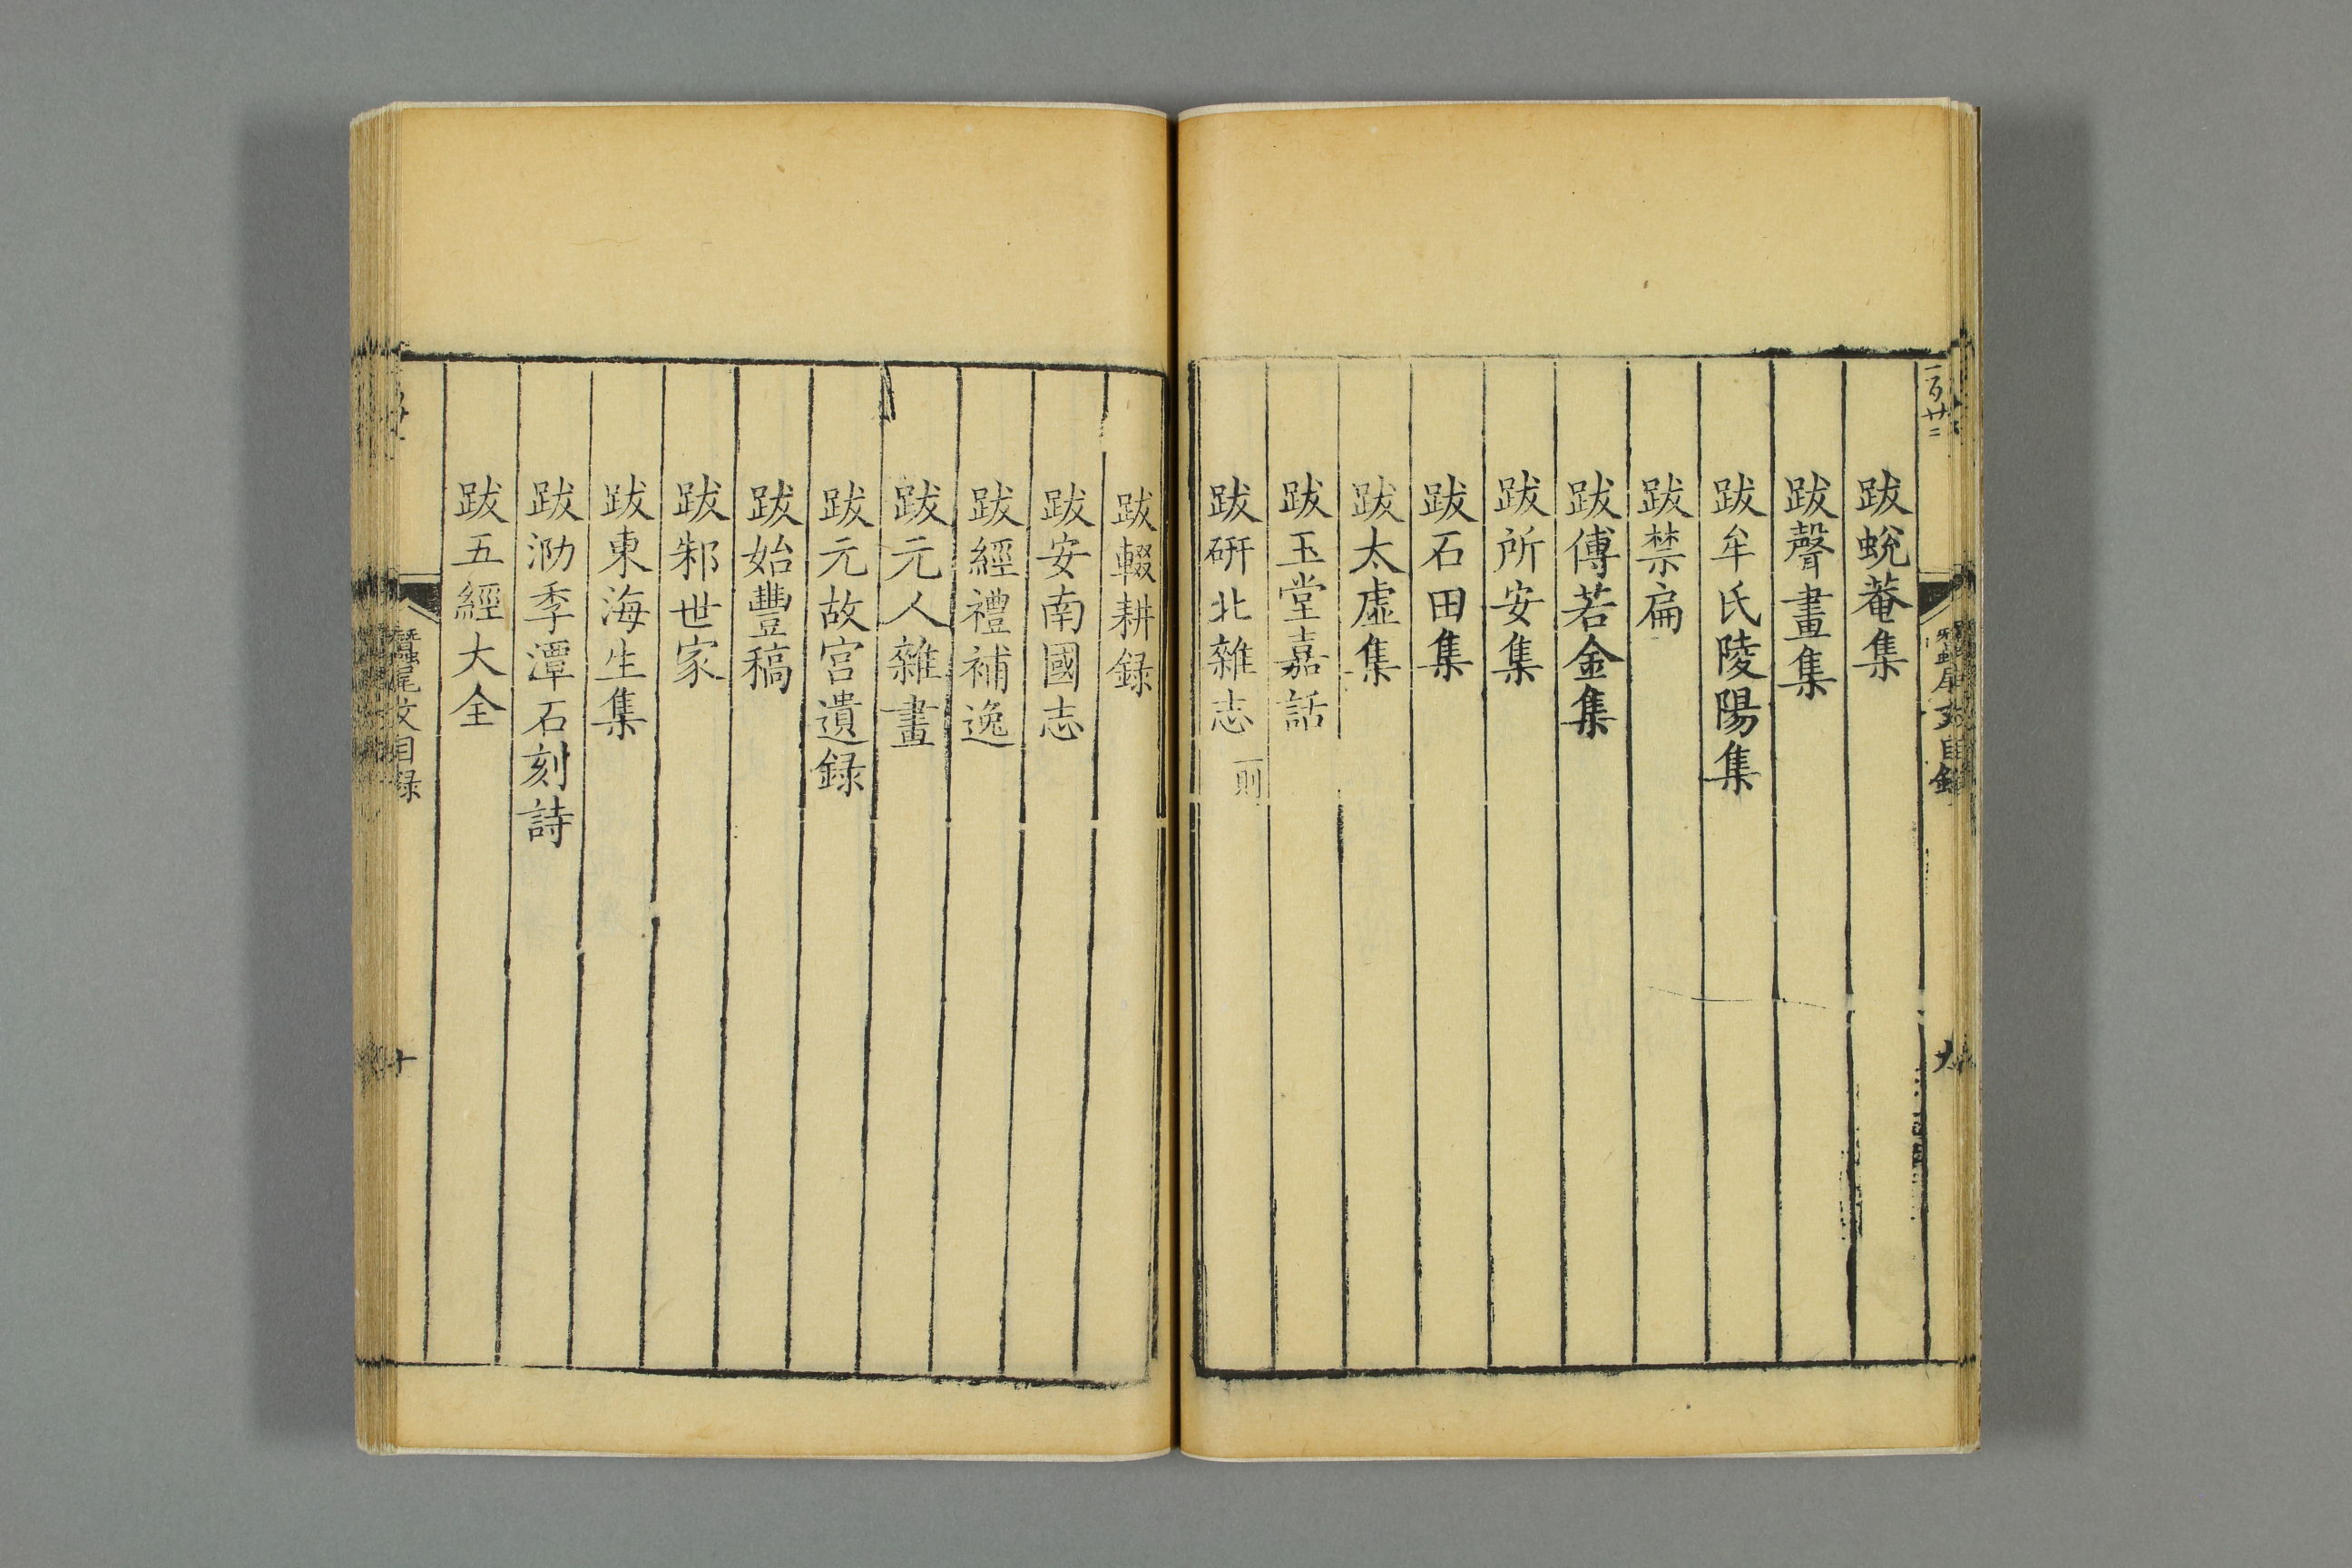 一百廿二
跋蛻菴集
跋聲畫集
跋牟氏陵陽集
跋禁扁
跋傅若金集
跋所安集
跋石田集
跋太虛集
跋玉堂嘉話
跋研北雜志 一則
跋輟耕録
跋安南國志
跋經禮補逸
跋元人雜畫
跋元故宮遺録
跋始豐稿
跋邾世家
跋東海生集
跋泐季潭石刻詩
跋五經大全
蠶尾文目録
十